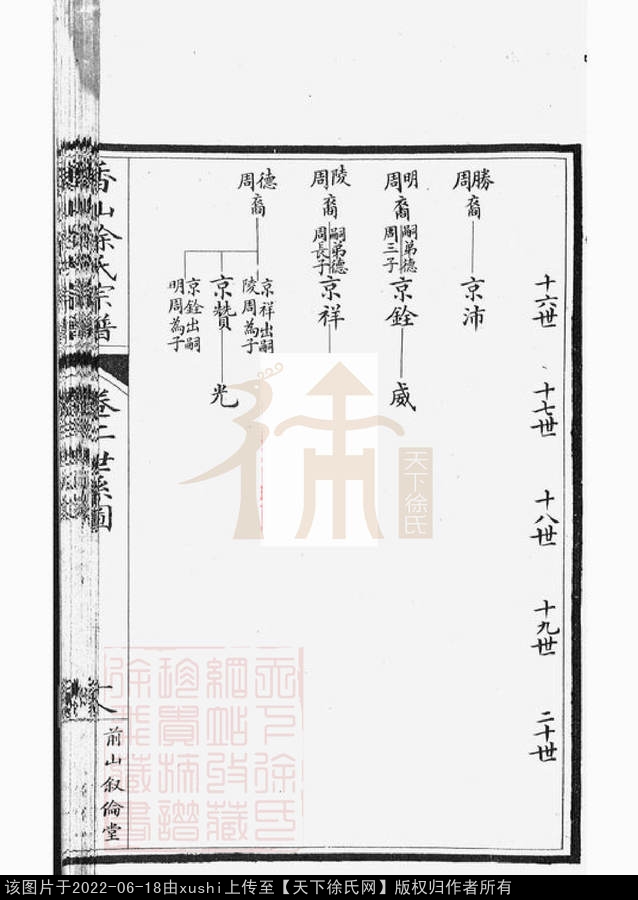 十六世
十七世
十八世
十九世
二十世
勝周裔
京沛
明周裔
嗣弟德
周三子
京銓
威
陵周裔
嗣弟德
周長子
京祥
德周裔
京祥出嗣
陵周為子
京贊
光
京銓出嗣
明周為子
香山徐氏宗譜
卷二世系圖
前山叙倫堂
天下徐氏
该图片于2022-06-18由xushi上传至【天下徐氏网】版权归作者所有